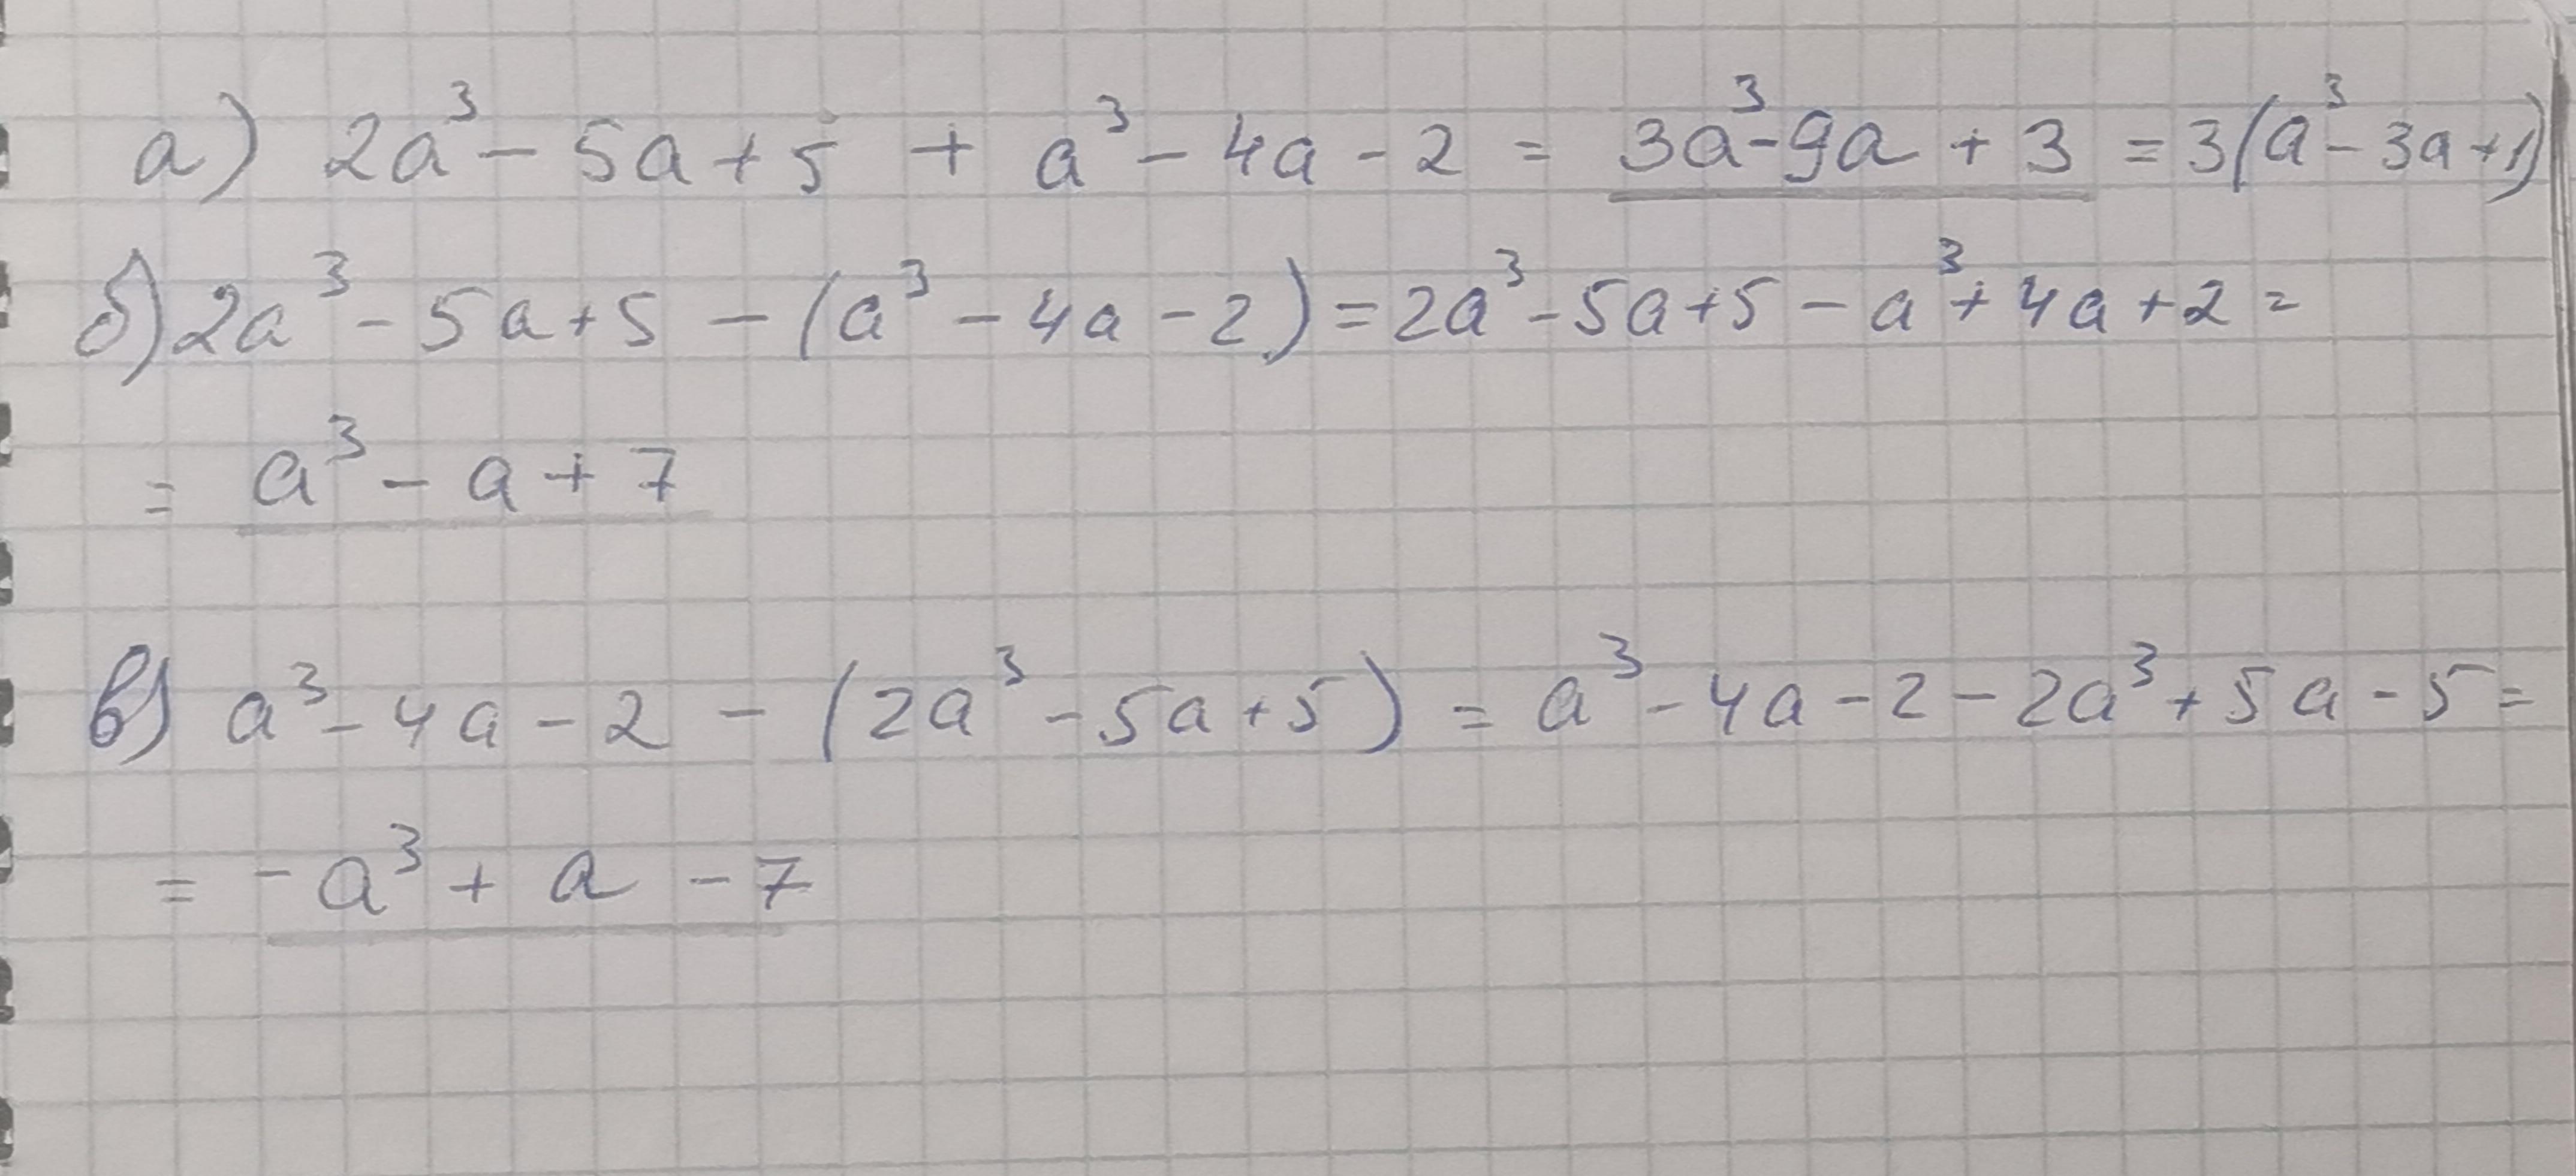 а) 2a³ - 5a + 5 + a³ - 4a - 2 = 3a³ - 9a + 3 = 3(a³ - 3a + 1)
б) 2a³ - 5a + 5 - (a³ - 4a - 2) = 2a³ - 5a + 5 - a³ + 4a + 2 =
= a³ - a + 7
в) a³ - 4a - 2 - (2a³ - 5a + 5) = a³ - 4a - 2 - 2a³ + 5a - 5 =
= -a³ + a - 7